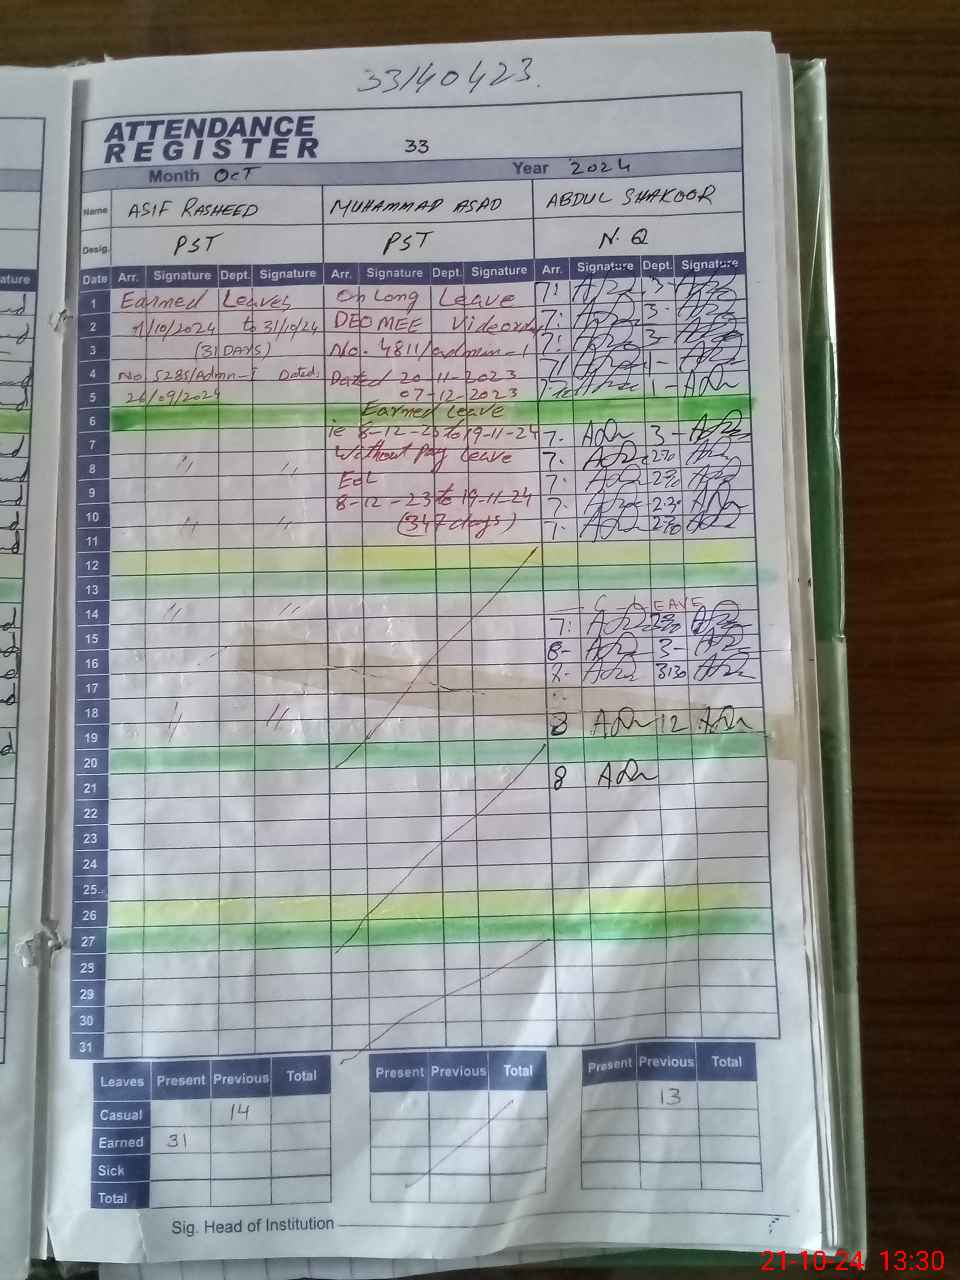 33140423.
ATTENDANCE
REGISTER 33
Month OCT Year 2024
Name ASIF RASHEED MUHAMMAD ASAD ABDUL SHAKOOR
Desig. PST PST N.Q
Date Arr. Signature Dept. Signature Arr. Signature Dept. Signature Arr. Signature Dept. Signature
1 Earned Leaves On Long Leave 7: 3-
2 1/10/2024 to 31/10/24 DEO MEE Vide 7: 3-
3 (31 DAYS) No. 4811/admin-I 7: 3-
4 No 5285/Admn-I Dated: Dated 20-11-2023 1-
5 26/09/2024 07-12-2023 1-
6 Earned Leave
7 ie 8-12-23 to 19-11-24 7. 3-
8 " " Without Pay Leave 7.
9 EOL 7.
10 8-12-23 to 19-11-24 7. 2.30
11 " " (347 days) 7.
12
13
14 " " LEAVE
15 7:
16 8- 3-
17 3130
18 " "
19 8 12
20
21 8
22
23
24
25
26
27
28
29
30
31
Leaves Present Previous Total Present Previous Total Present Previous Total
Casual 14 13
Earned 31
Sick
Total
Sig. Head of Institution
21-10-24 13:30